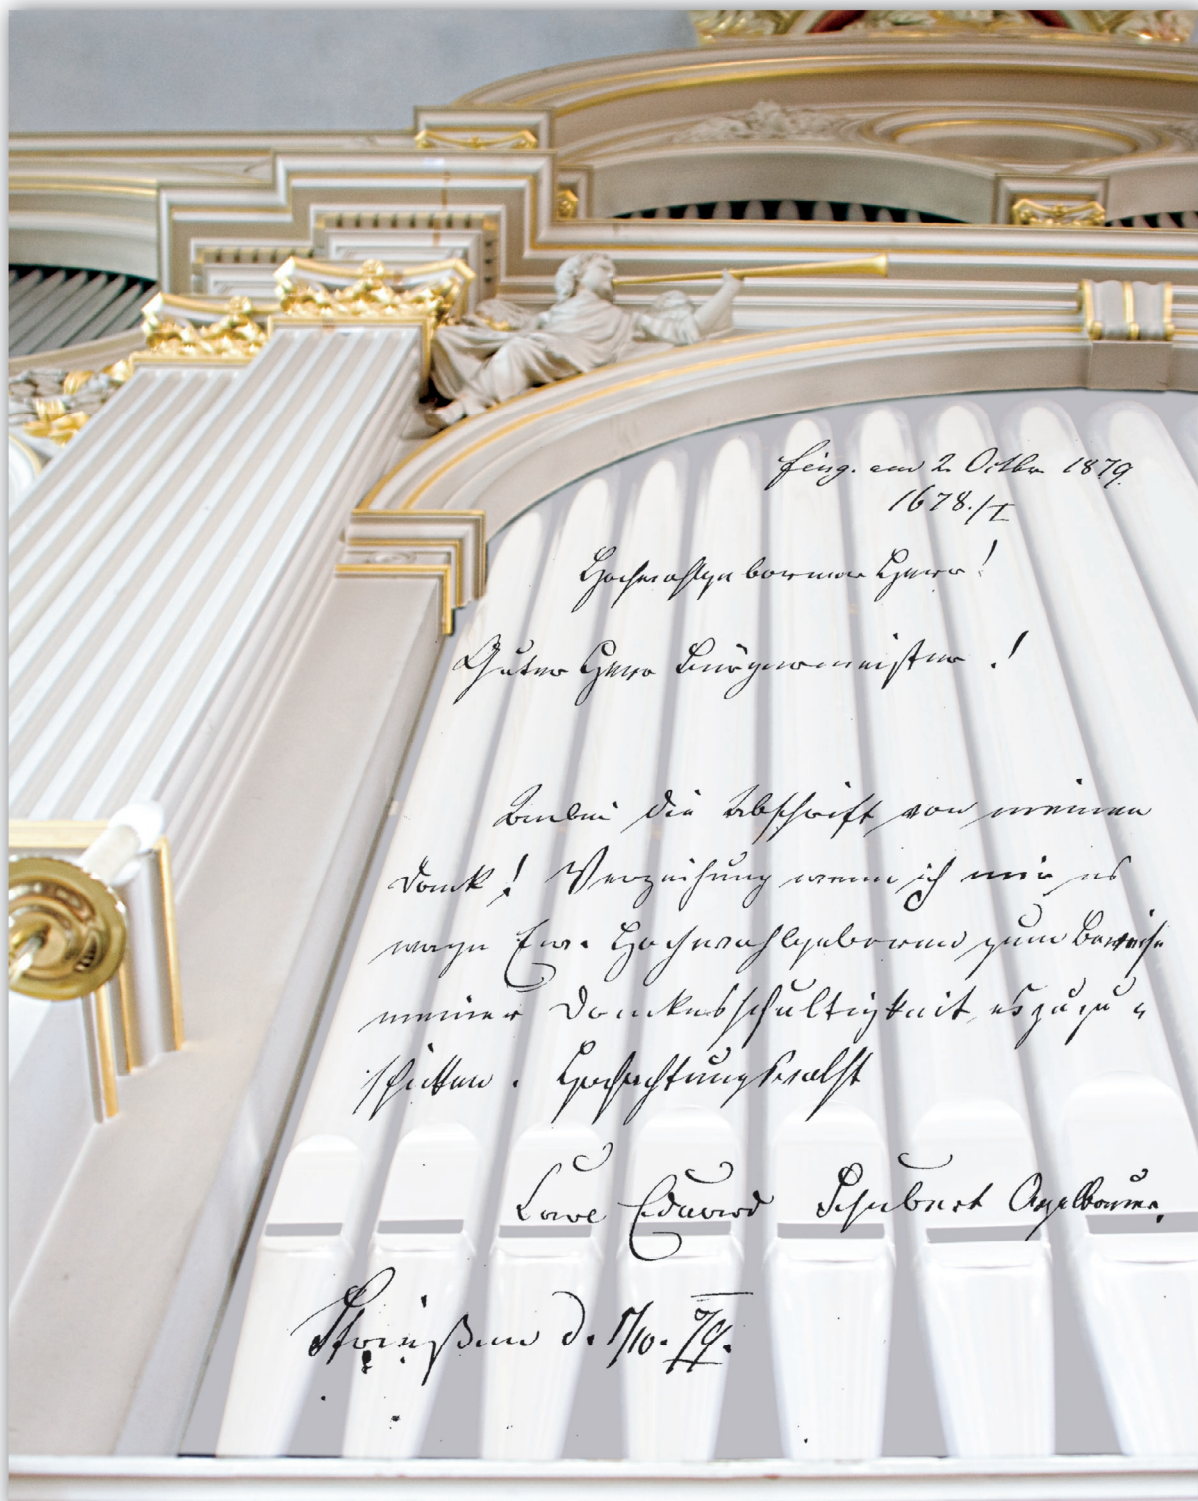 Eing. am 2. Octbr 1879.
1678./I
Hochwohlgeborner Herr!
Guter Herr Bürgermeister.!
Anbei die Abschrift von meinen
Dank! Verzeihung wenn ich mir es
wage Ew. Hochwohlgeboren zum Beweise
meiner Dankesschultigkeit es zuzu=
schicken. Hochachtungsvollst
Carl Eduard Schubert Orgelbauer.
d. 1/10. 79.